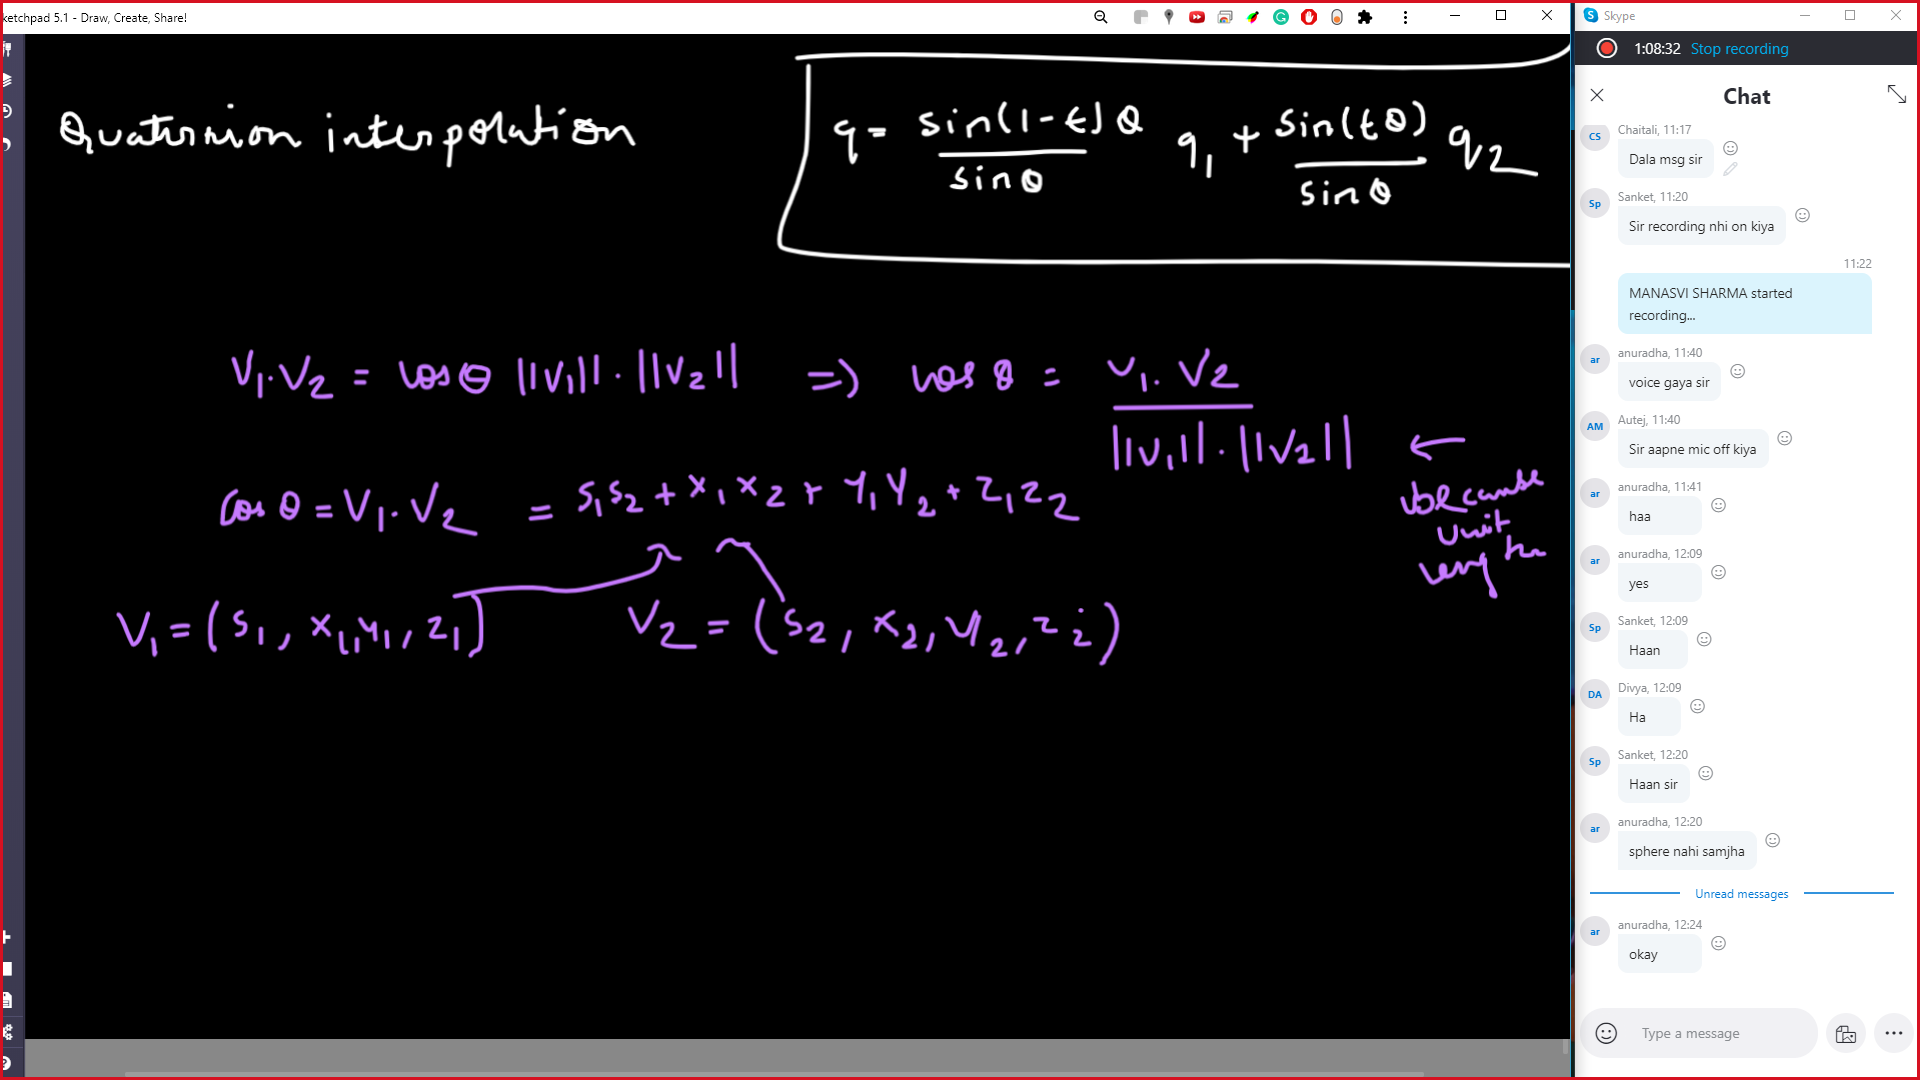 ketchpad 5.1 - Draw, Create, Share!
Quaternion interpolation
q = sin(1-t)θ / sinθ q₁ + sin(tθ) / sinθ q₂
V₁.V₂ = cosθ ||V₁||.||V₂|| => cosθ = V₁.V₂ / ||V₁||.||V₂|| ←
because
unit
length
cosθ = V₁.V₂ = S₁S₂ + x₁x₂ + y₁y₂ + z₁z₂
V₁ = (S₁, x₁, y₁, z₁) V₂ = (S₂, x₂, y₂, z₂)
Skype
1:08:32 Stop recording
Chat
CS
Chaitali, 11:17
Dala msg sir
Sp
Sanket, 11:20
Sir recording nhi on kiya
11:22
MANASVI SHARMA started
recording...
ar
anuradha, 11:40
voice gaya sir
AM
Autej, 11:40
Sir aapne mic off kiya
ar
anuradha, 11:41
haa
ar
anuradha, 12:09
yes
Sp
Sanket, 12:09
Haan
DA
Divya, 12:09
Ha
Sp
Sanket, 12:20
Haan sir
ar
anuradha, 12:20
sphere nahi samjha
Unread messages
ar
anuradha, 12:24
okay
Type a message